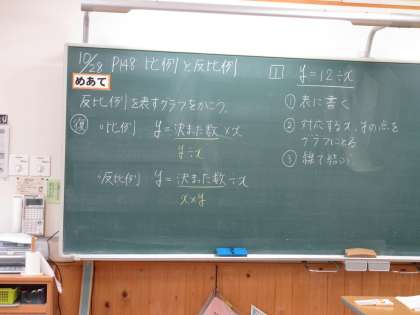 10/28 P148 比例と反比例
めあて
反比例を表すグラフをかこう。
復 ○比例 y=決まった数×x
y÷x
○反比例 y=決まった数÷x
x×y
1 y=12÷x
① 表に書く
② 対応するx、yの点を
グラフにとる
③ 線で結ぶ